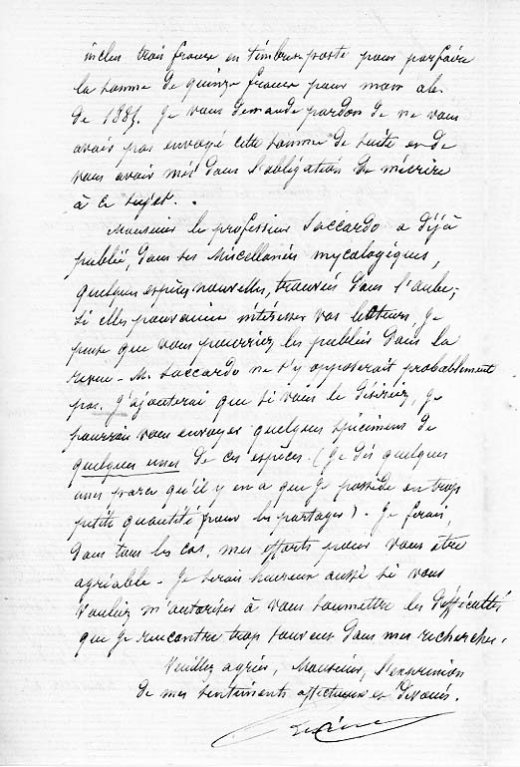 inclus trois francs en timbres poste pour parfaire
la somme de quinze francs pour mon ab.
de 1881. Je vous demande pardon de ne vous
avoir pas envoyé cette somme de suite et de
vous avoir mis dans l'obligation de m'écrire
à ce sujet.
Monsieur le professeur Saccardo a déjà
publié, dans ses Miscellanées mycologiques,
quelques espèces nouvelles, trouvées dans l'aube;
si elles pouvaient intéresser vos lecteurs, je
pense que vous pourriez les publier dans la
revue - M. Saccardo ne s'y opposerait probablement
pas. J'ajouterai que si vous le désiriez, je
pourrais vous envoyer quelques spécimens de
quelques unes de ces espèces. (Je dis quelques
unes parce qu'il y en a que je possède en trop
petite quantité pour les partager). Je ferai,
dans tous les cas, mes efforts pour vous être
agréable - Je serais heureux aussi si vous
vouliez m'autoriser à vous soumettre les difficultés
que je rencontre trop souvent dans mes recherches.
Veuillez agréer, Monsieur, l'expression
de mes sentiments affectueux et dévoués.